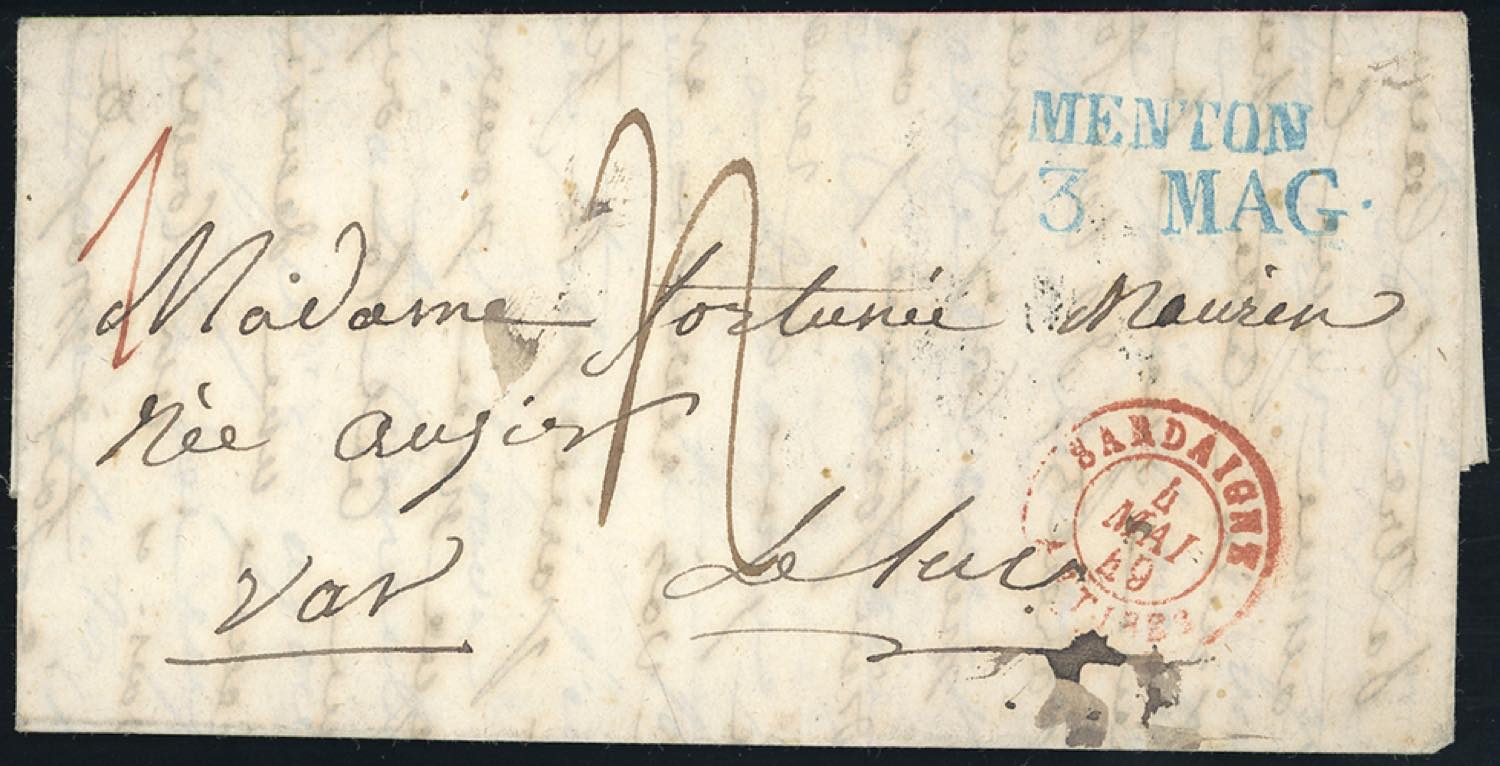 MENTON
3 MAG.
Madame fortunée Maurin
née augier
Var Le Luc
SARDAIGNE
4
MAI
49
ANTIBES